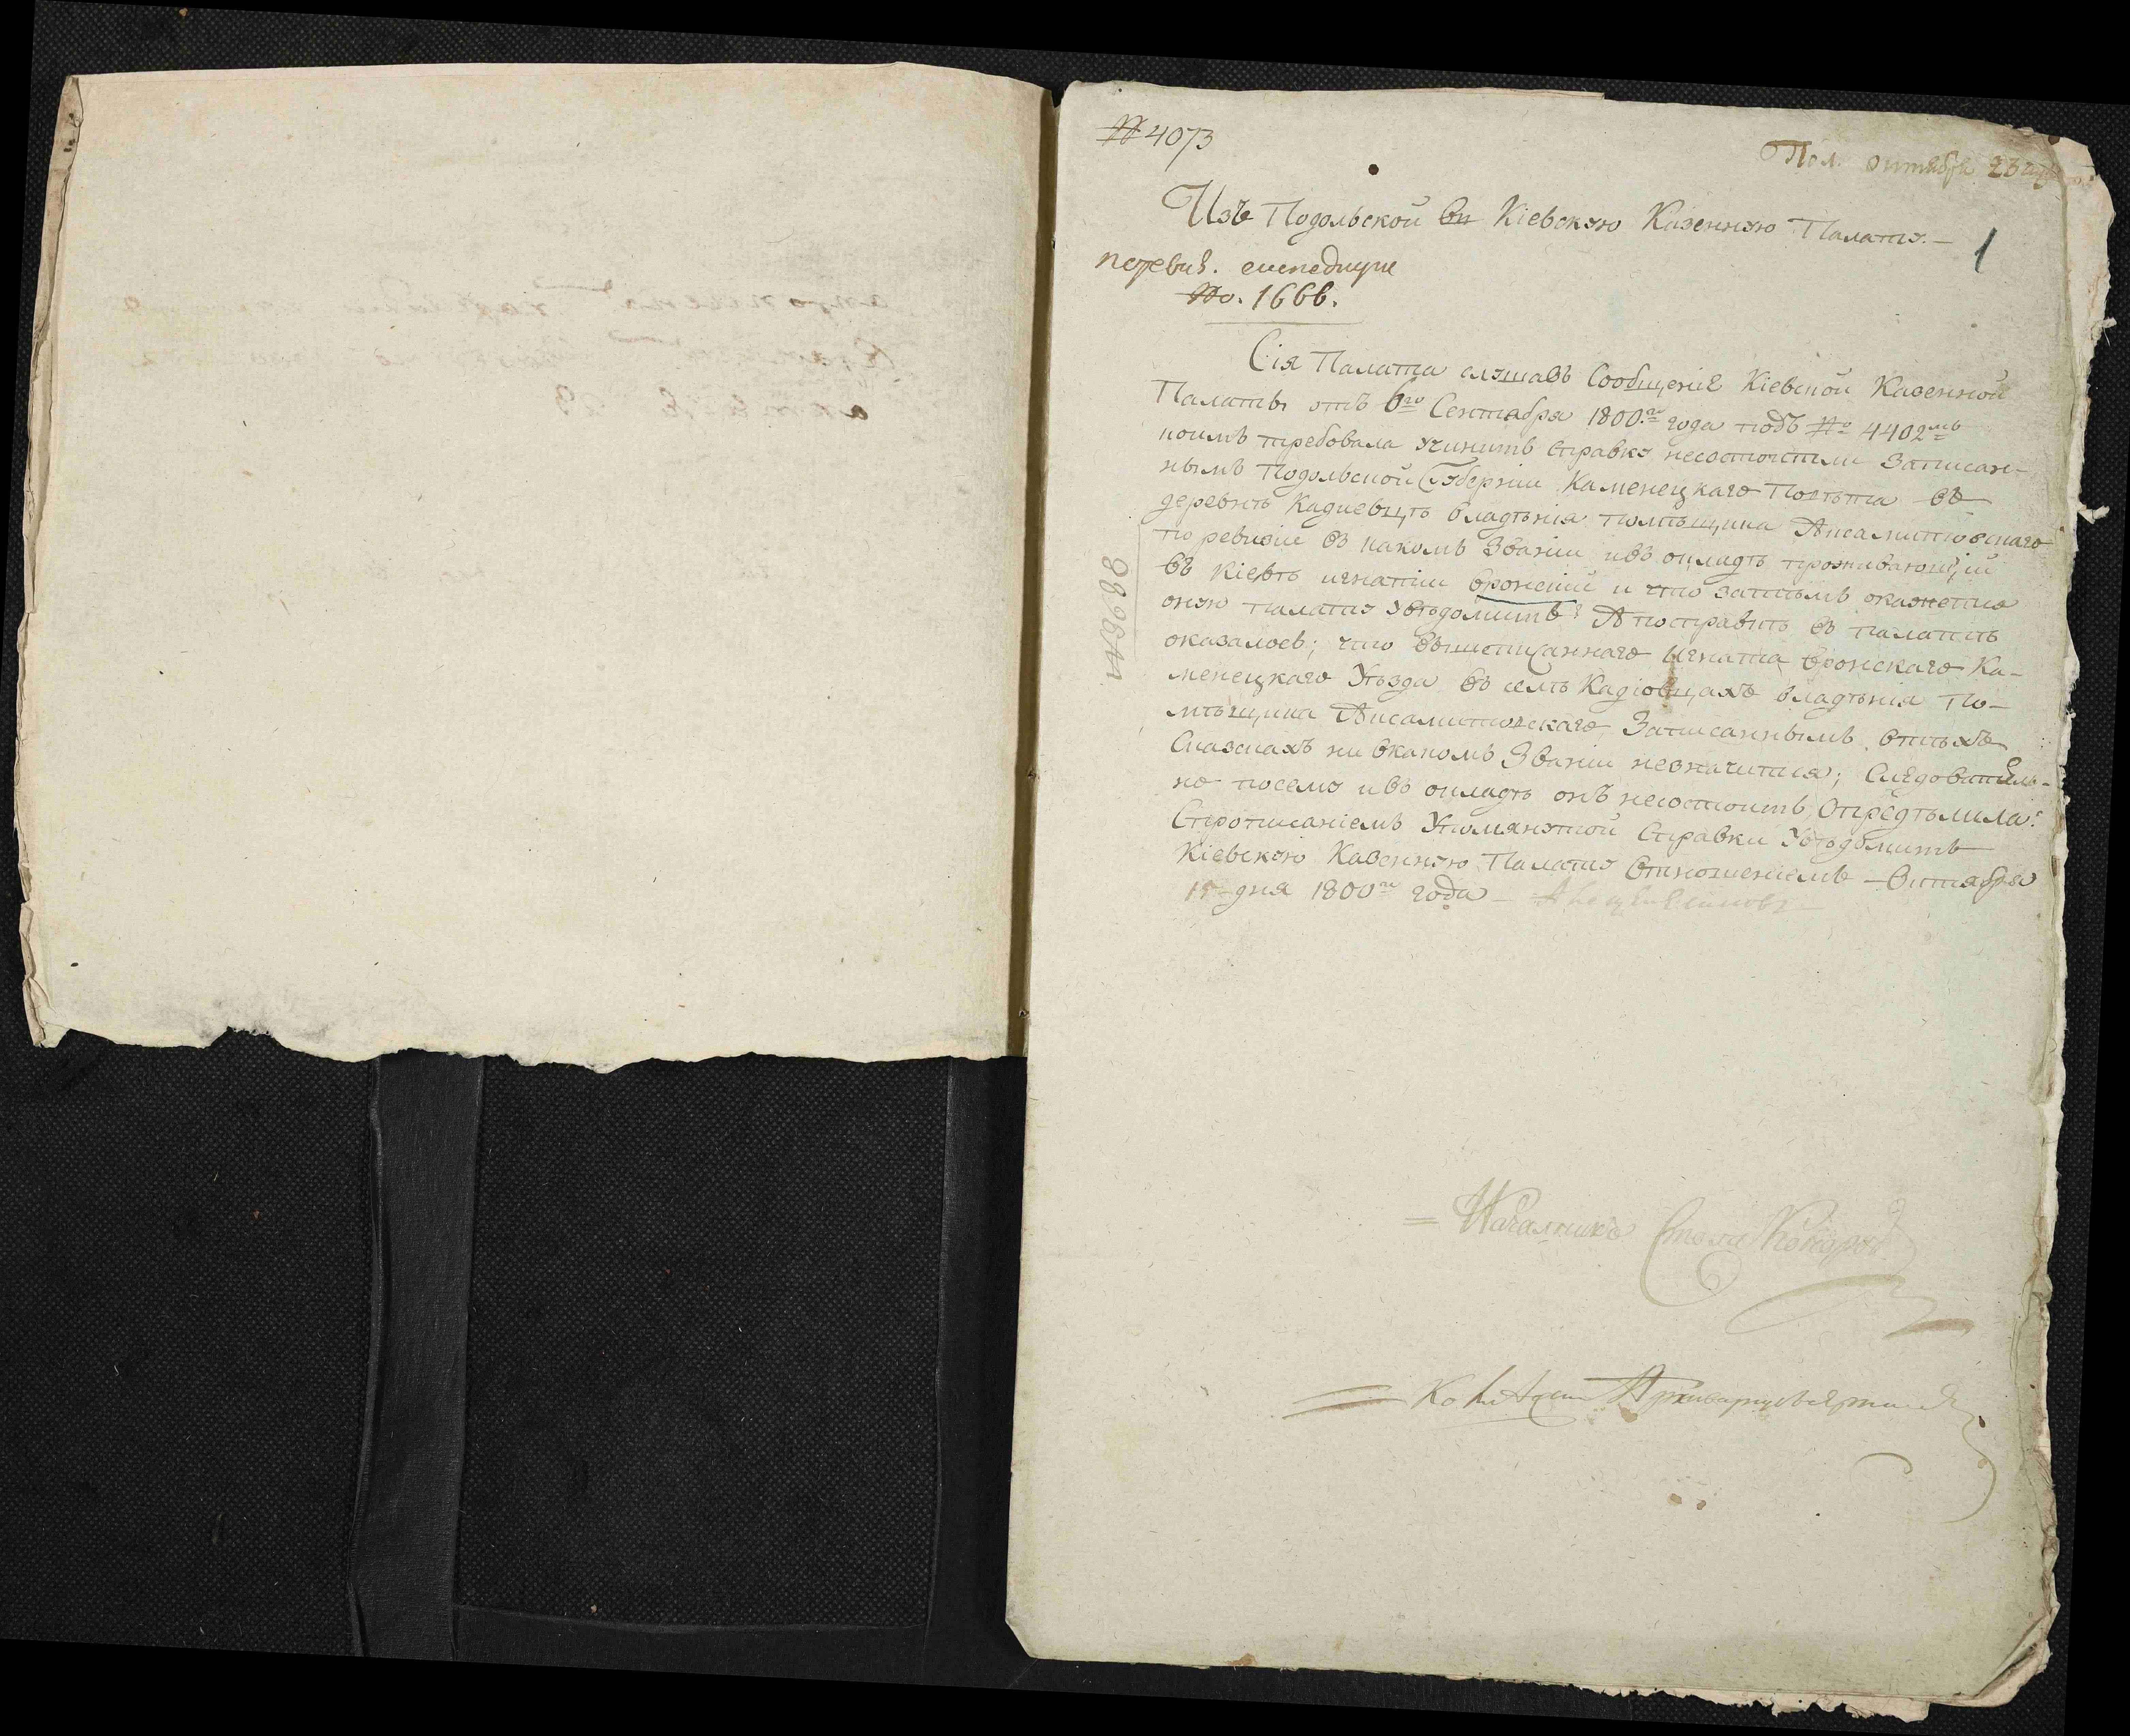 № 4073
Пол. октября 23
Изъ Подольской въ Кіевскую Казенную Палату.
1
поревиз. експедиціи
No. 1666.
Сія Палата слушавъ Сообщеніе Кіевской Казенной
Палаты отъ 6го Сентября 1800.го года подъ № 4402мъ
коимъ требовала учинить справку несостоитли записан-
нымъ Подольской Губерніи Каменецкаго Повѣта въ
деревнѣ Кадиевцѣ владѣнія помѣщика
по ревизіи въ какомъ званіи ивъ окладѣ проживающій
въ Кіевѣ игнатій вронскій и что затѣмъ окажется
оную палату уведомить? А посправкѣ въ палатѣ
оказалось; что вышеписаннаго Игната вронскаго Ка-
менецкаго Уѣзда въ селѣ Кадіовцахъ владѣнія По-
мѣщика Записаннымъ втѣхъ
Сказкахъ ни вкакомъ Званіи незначится; Следователь-
но посему ивъ окладѣ онъ несостоитъ, Опредѣлила:
Спрописаніемъ Упомянутой Справки Уведомить
Кіевскую Казенную Палату Отношеніемъ — Октября
15 дня 1800го года —
Началникъ Стола